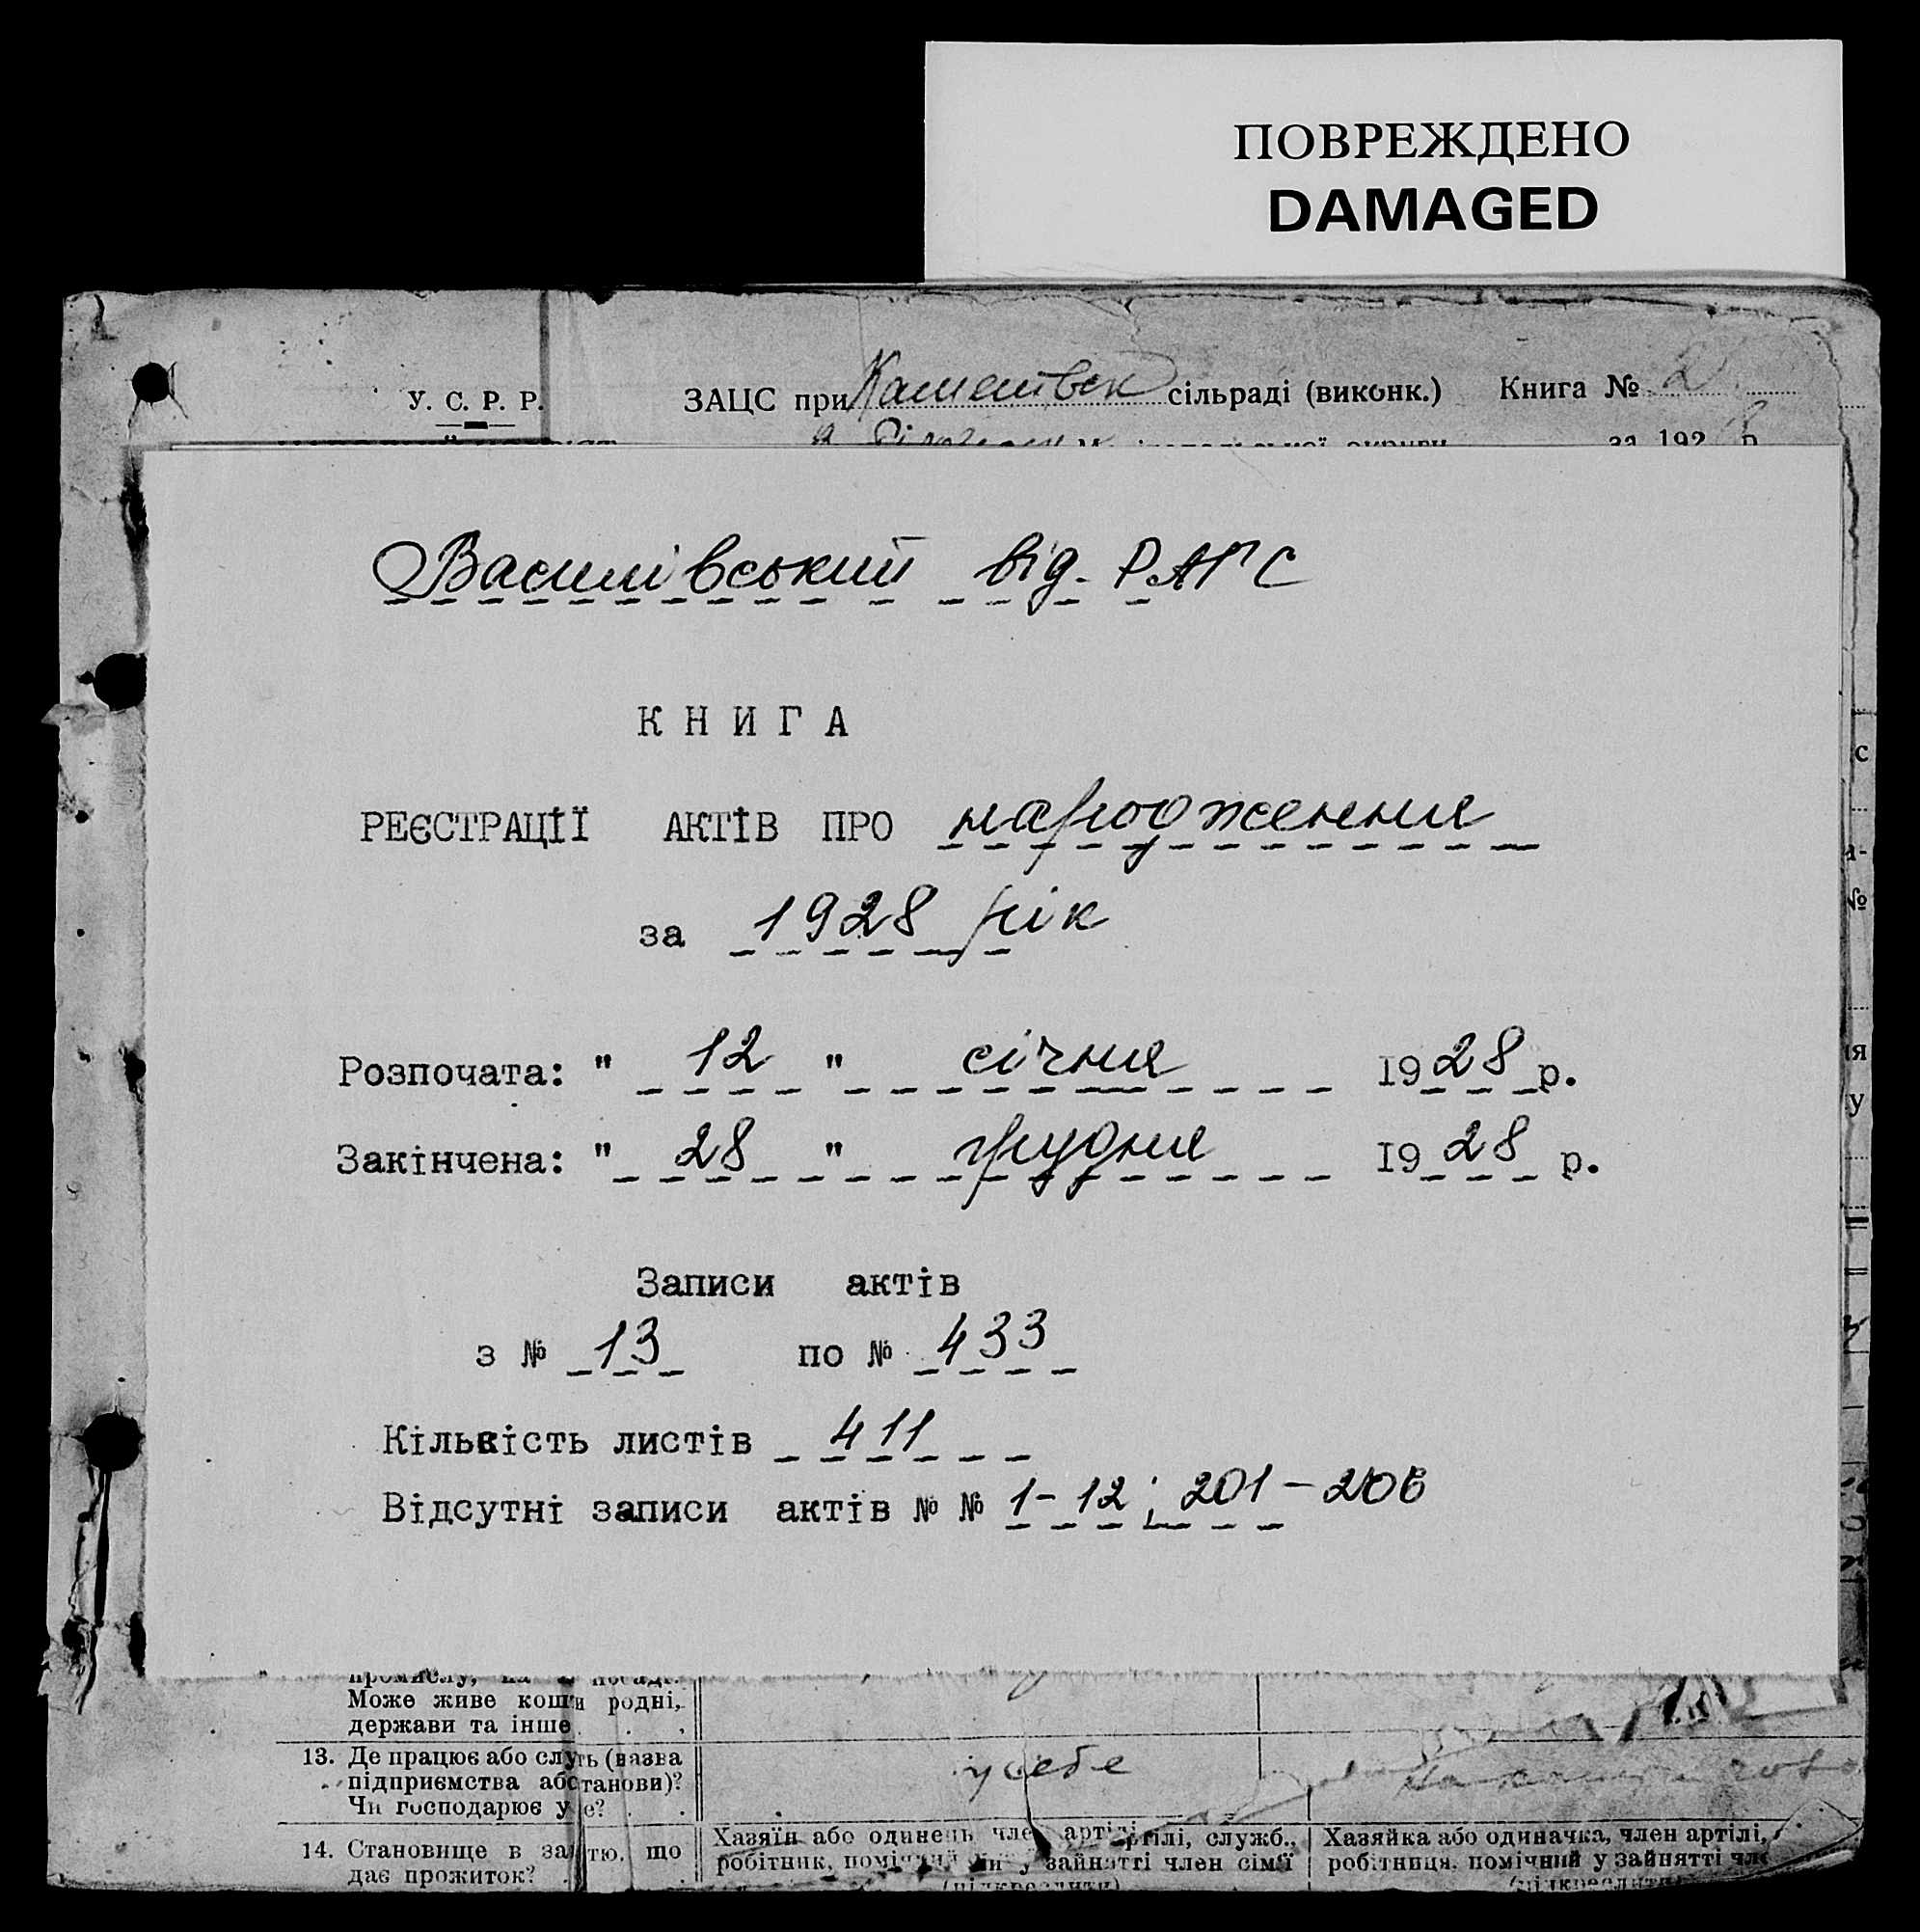 ПОВРЕЖДЕНО
DAMAGED
У. С. Р. Р.
ЗАЦС при сільраді (виконк.) Книга № 2
округи за 192 р
Василівський від. РАГС
КНИГА
РЕЄСТРАЦІЇ АКТІВ ПРО народження
за 1928 рік
Розпочата: " 12 " січня 1928 р.
Закінчена: " 28 " грудня 1928 р.
Записи актів
з № 13 по № 433
Кількість листів 411
Відсутні записи актів № № 1-12; 201-206
с
№
я
у
промислу,
Може живе кошти родні,
держави та інше
13. Де працює або слу ть (назва
підприємства або танови)?
Чи господарює у е?
у себе
14. Становище в за тю, що
дає прожиток?
Хазяїн або одинець, член артілі, служб.,
робітник, помічний у зайнятті член сім'ї
(підкреслити)
Хазяйка або одиначка, член артілі,
робітниця, помічний у зайнятті чле
(підкреслити